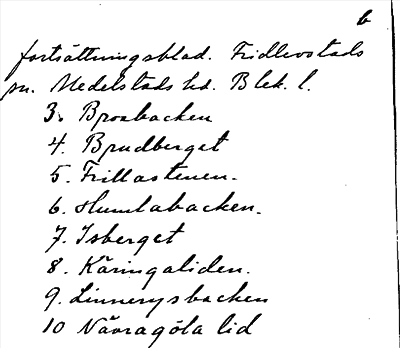 6
fortsättningsblad. Fridlevstads
sn. Medelstads hd. Blek. l.
3. Broabacken
4. Brudberget
5. Frillastenen.
6. Humlabacken.
7. Isberget
8. Käringaliden.
9. Linnerysbacken
10 Nävragöla lid